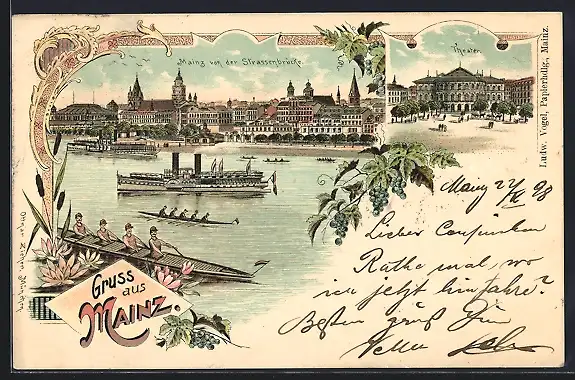 Mainz von der Strassenbrücke.
Theater.
Ludw. Vogel, Papierhdlg., Mainz.
Gruss
aus
MAINZ.
Mainz 24/ 98
Lieber
Rathe mal, wo
ich jetzt hinfahre?
Besten Gruß Dein